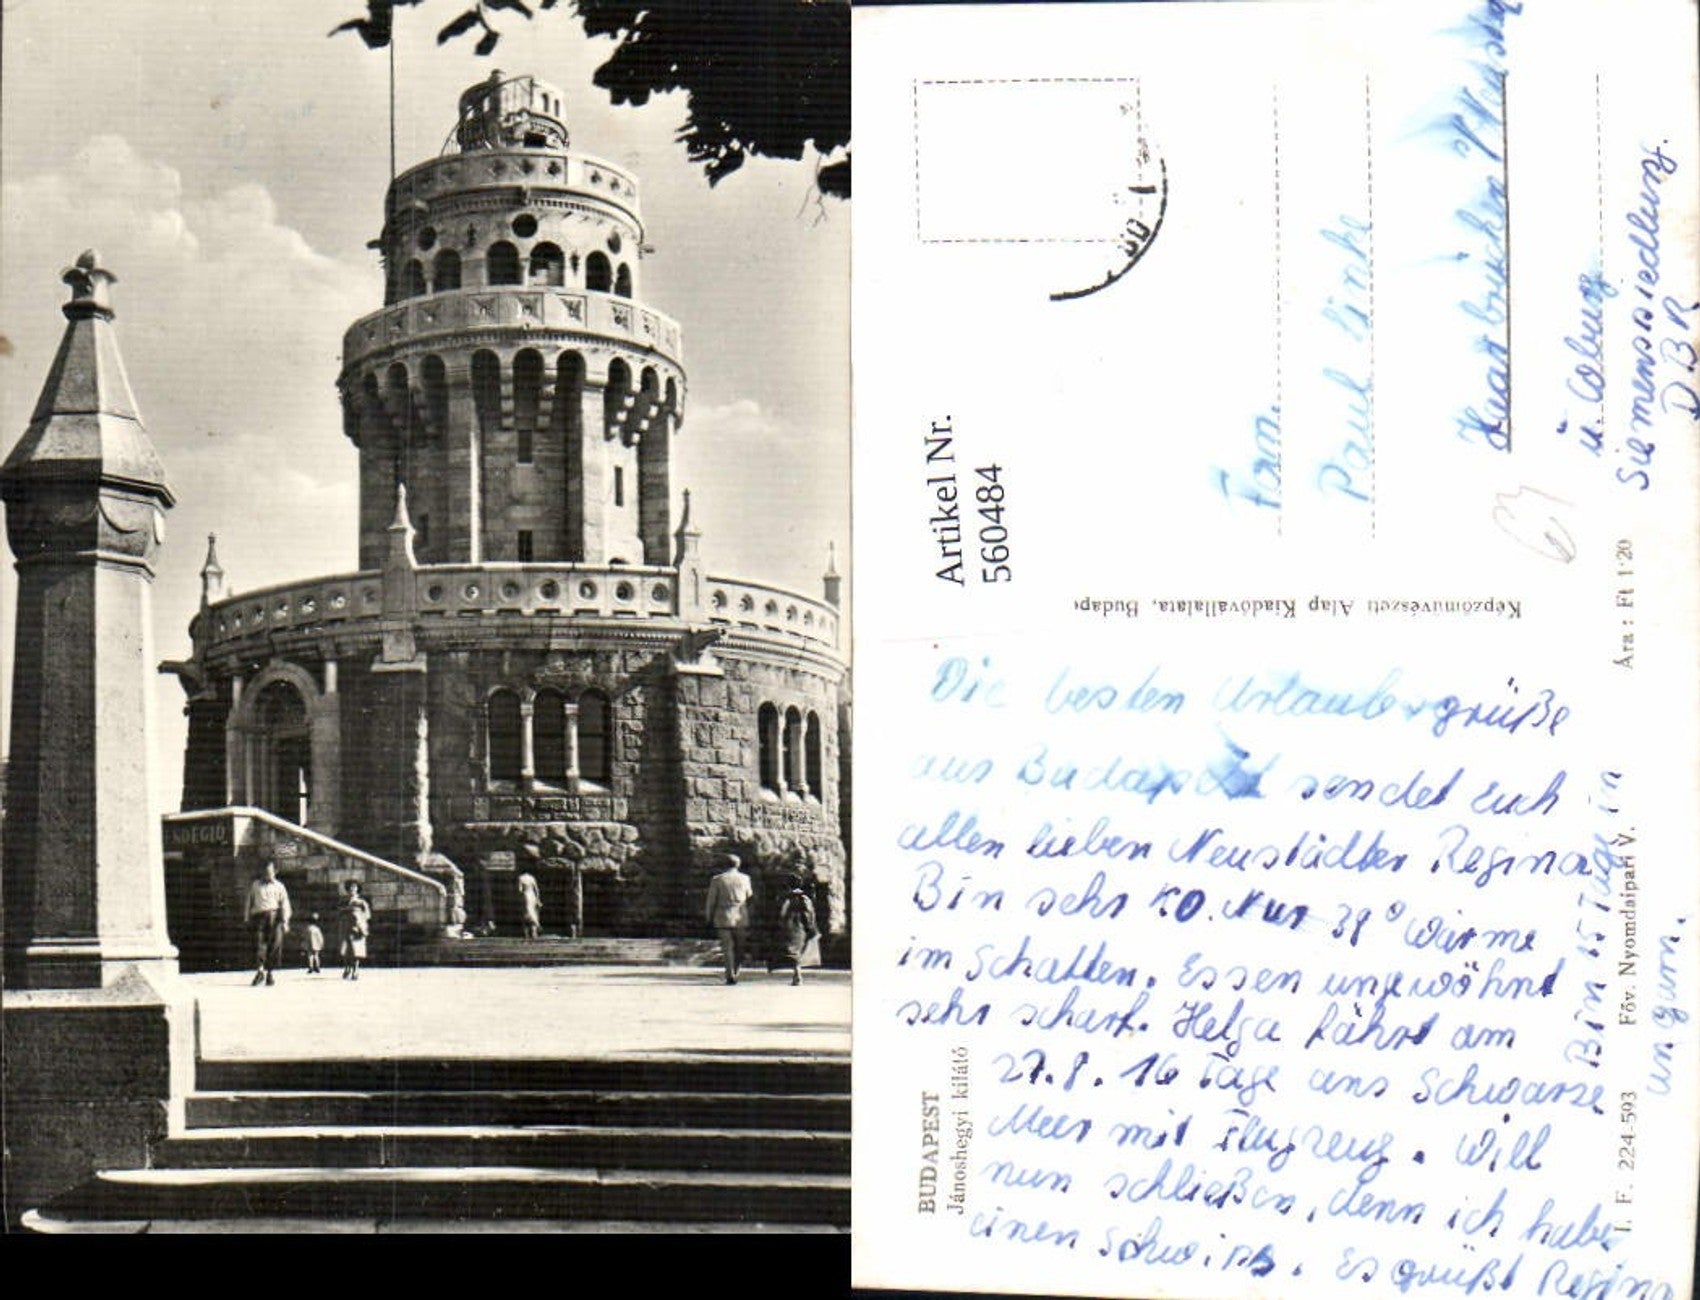 NDÉGLŐ
Artikel Nr.
560484
Fam.
Paul Linke
ü. Coburg
Siemenssiedlung.
DBR
Képzőművészeti Alap Kiadóvállalata, Budape
Ára: Ft 1·20
Die besten Urlaubsgrüße
aus Budapest sendet Euch
allen lieben Neustädter Regina
Bin sehr K.O. Nur 38° Wärme
im Schatten. Essen ungewöhnt
sehr scharf. Helga fährt am
27.8. 16 Tage ans Schwarze
Meer mit Flugzeug. Will
nun schließen, denn ich habe
einen Schwips. Es grüßt Regina
Bin 15 Tage in
Ungarn.
BUDAPEST
Jánoshegyi kilátó
I. F. 224-593
Főv. Nyomdaipari V.